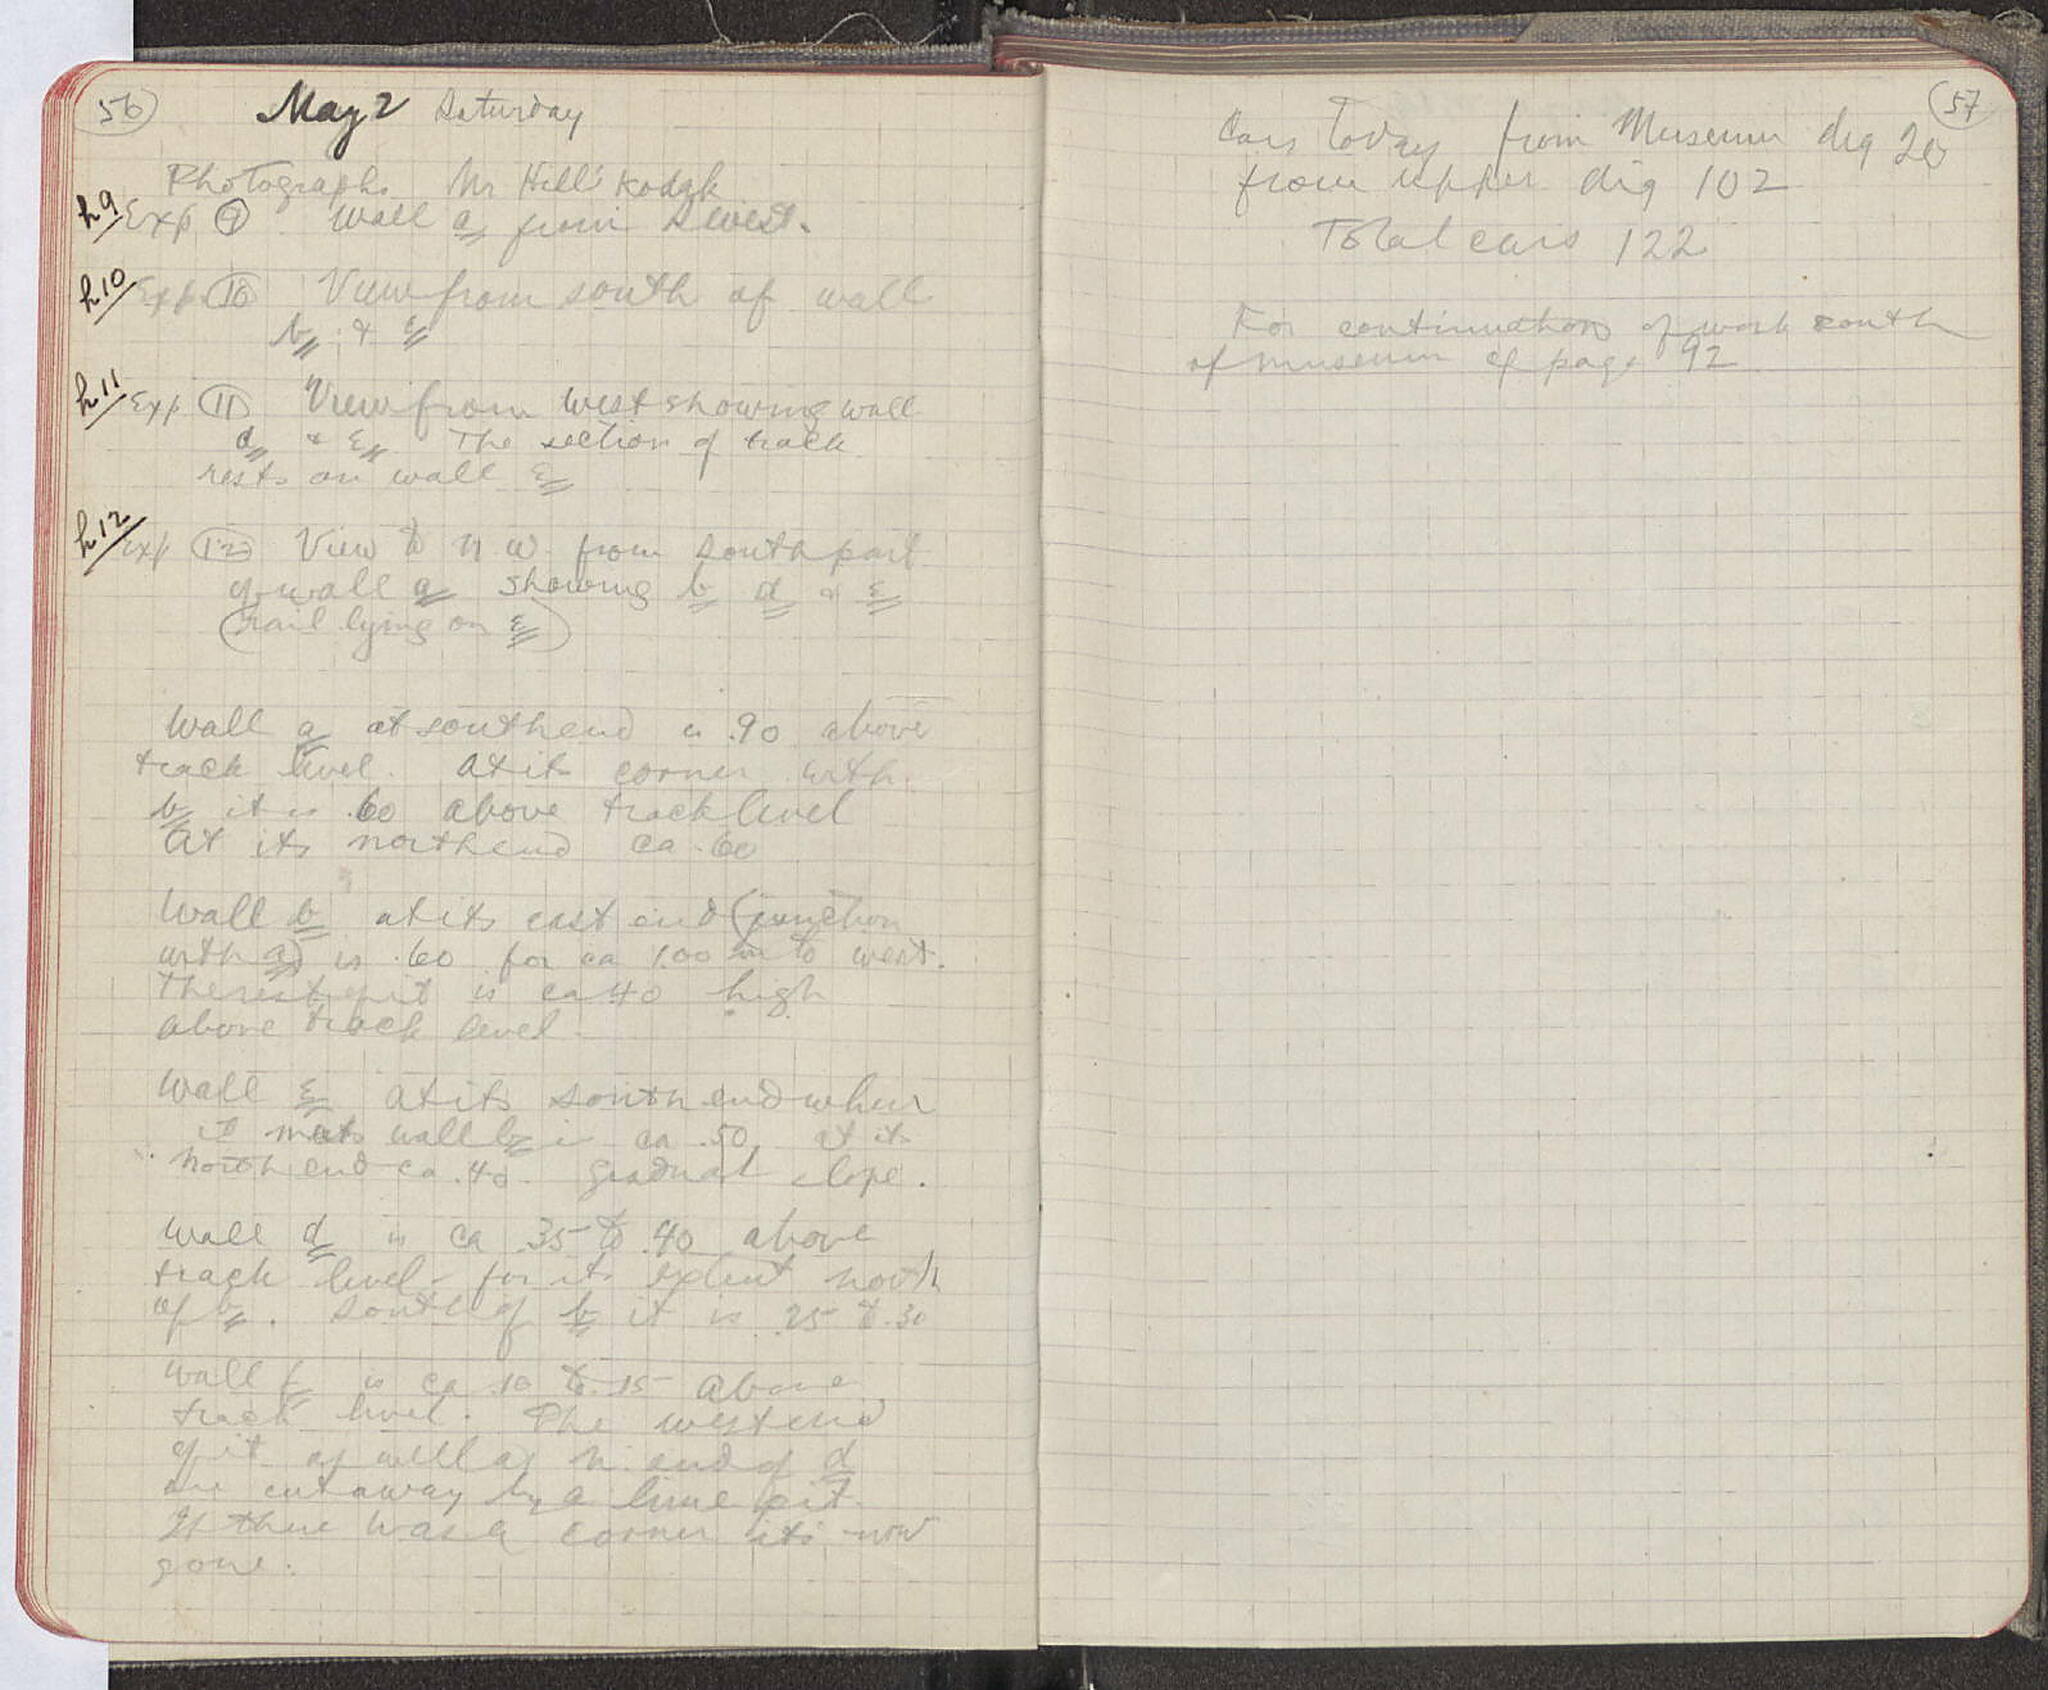 56
May 2 Saturday
Photographs Mr Hill's Kodak
h9 Exp 9 Wall a from S West.
h10 Exp 10 View from south of wall
b & ε
h11 Exp 11 View from west showing wall
d & ε. The section of track
rests on wall ε
h12 Exp 12 View to N W. from south part
of wall a showing b d & ε
(rail lying on ε)
Wall a at south end is .90 above
track level. At its corner with
b it is .60 above track level
At its north end ca .60
Wall b at its east end (junction
with a) is .60 for ca 1.00 m to west.
The rest of it is ca 40 high
above track level.
Wall ε at its south end where
it meets wall b is ca .50 at its
north end ca .40. gradual slope.
Wall d is ca .35 to .40 above
track level for its extent north
of b. South of b it is .25 to .30
Wall f is ca .10 to .15 above
track level. The west end
of it as well as N. end of d
are cut away by a lime pit.
If there was a corner its now
gone.
57
Cars today from Museum dig 20
from upper dig 102
Total cars 122
For continuation of work south
of museum cf page 92